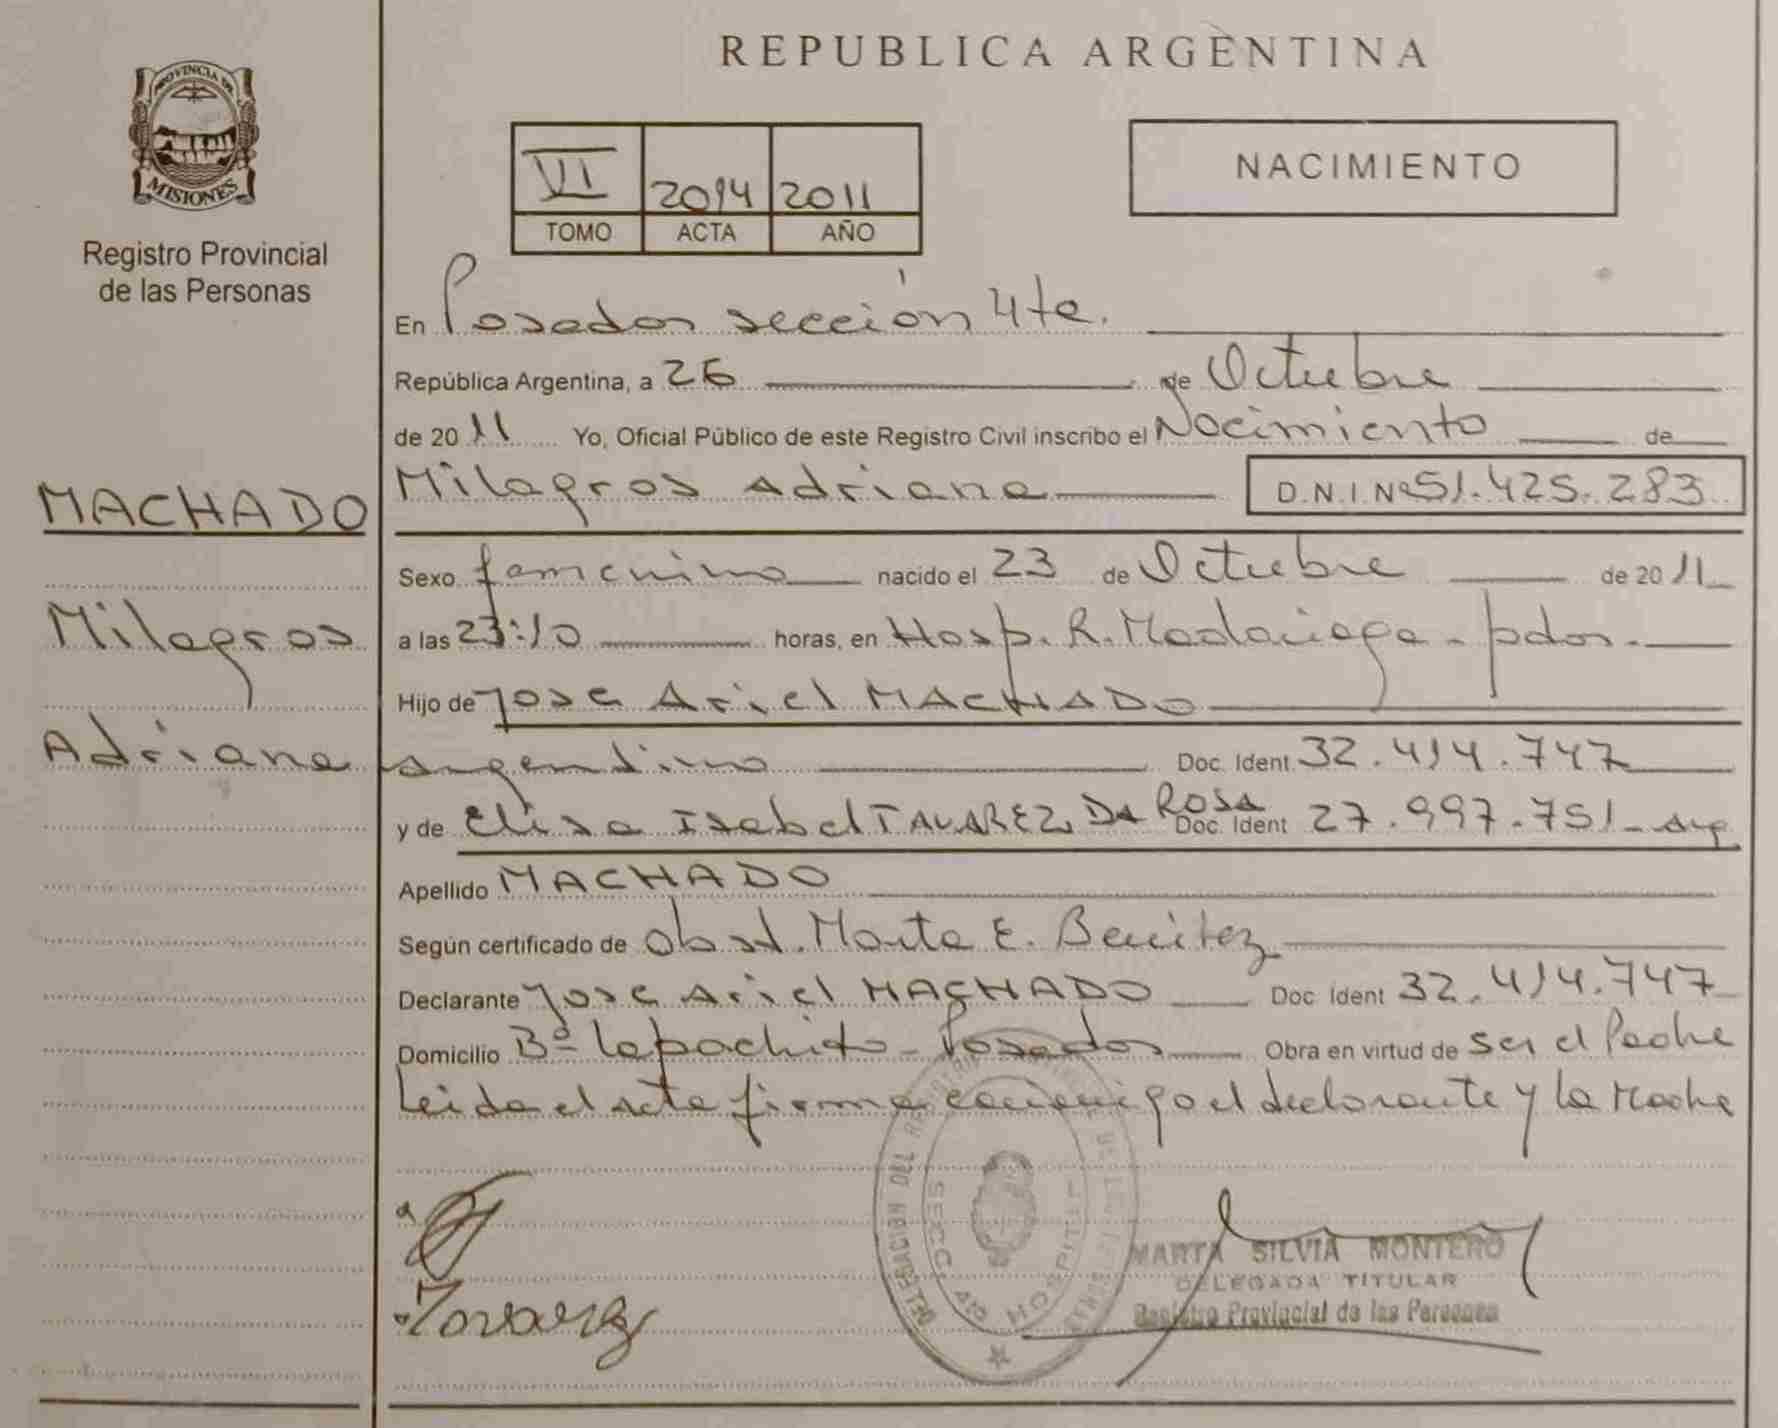 REPUBLICA ARGENTINA
PROVINCIA DE
MISIONES
Registro Provincial
de las Personas
VI 2014 2011
TOMO ACTA AÑO
NACIMIENTO
En Posadas sección 4ta.
República Argentina, a 26 de Octubre
de 2011 Yo, Oficial Público de este Registro Civil inscribo el Nacimiento de
MACHADO
Milagros
Adriana
Milagros Adriana D.N.I. Nº 51.425.283
Sexo femenino nacido el 23 de Octubre de 2011
a las 23:10 horas, en Hosp. R. Madariaga - pdas.
Hijo de Jose Ariel MACHADO
argentino Doc. Ident. 32.414.747
y de Elisa Isabel TAVAREZ DA ROSA Doc. Ident 27.997.751 - arg
Apellido MACHADO
Según certificado de Obst. Marta E. Benitez
Declarante Jose Ariel MACHADO Doc. Ident 32.414.747
Domicilio Bº Lapachito - Posadas Obra en virtud de ser el Padre
Leida el acta firma conmigo el declarante y la Madre
DELEGACION DEL
SECC. 4ta HOSPITAL
Tavarez
MARTA SILVIA MONTERO
DELEGADA TITULAR
Registro Provincial de las Personas